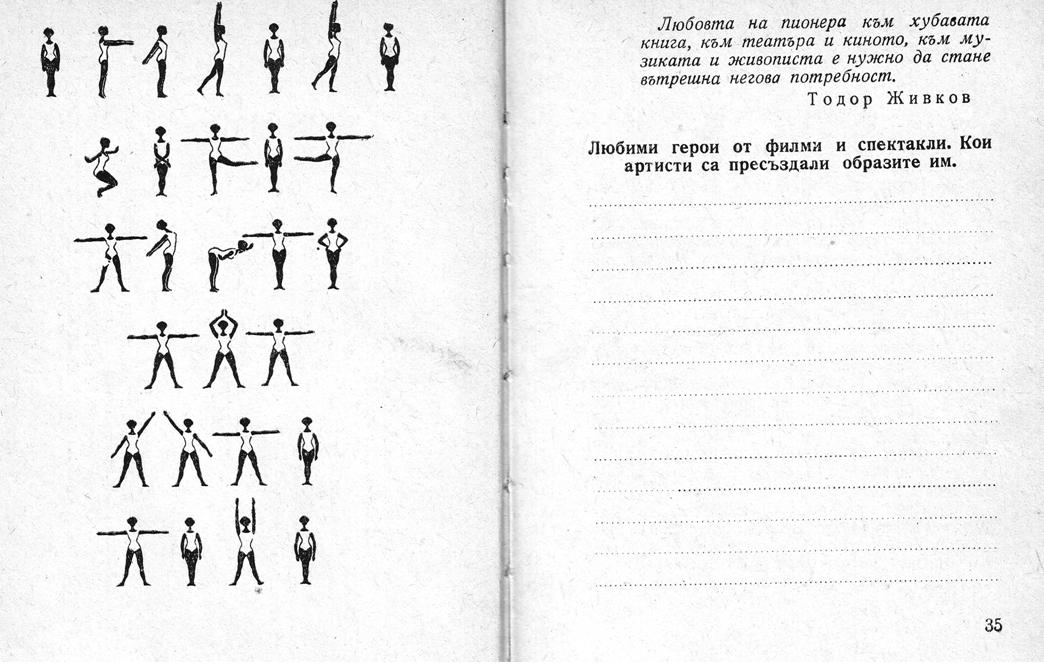 Любовта на пионера към хубавата
книга, към театъра и киното, към му-
зиката и живописта е нужно да стане
вътрешна негова потребност.
Тодор Живков
Любими герои от филми и спектакли. Кои
артисти са пресъздали образите им.
35